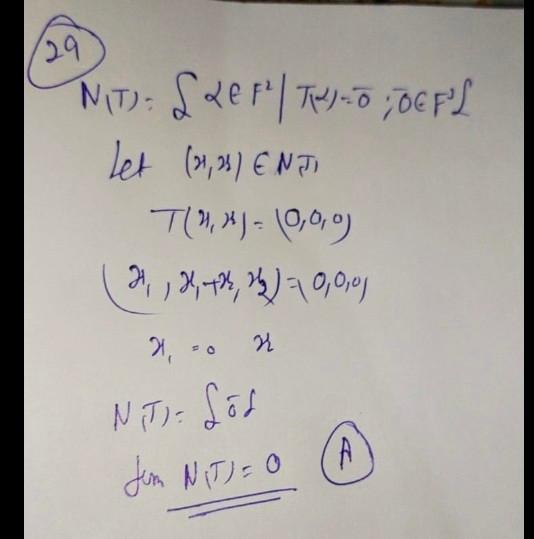 29
N(T) = { α ∈ F² / T(α) = 0̄ ; 0̄ ∈ F³ }
Let (x, x) ∈ N(T)
T(x, x) = (0,0,0)
(x₁, x₁+x, x₂) = (0,0,0)
x₁ = 0 x
N(T) = {0̄}
dim N(T) = 0 A